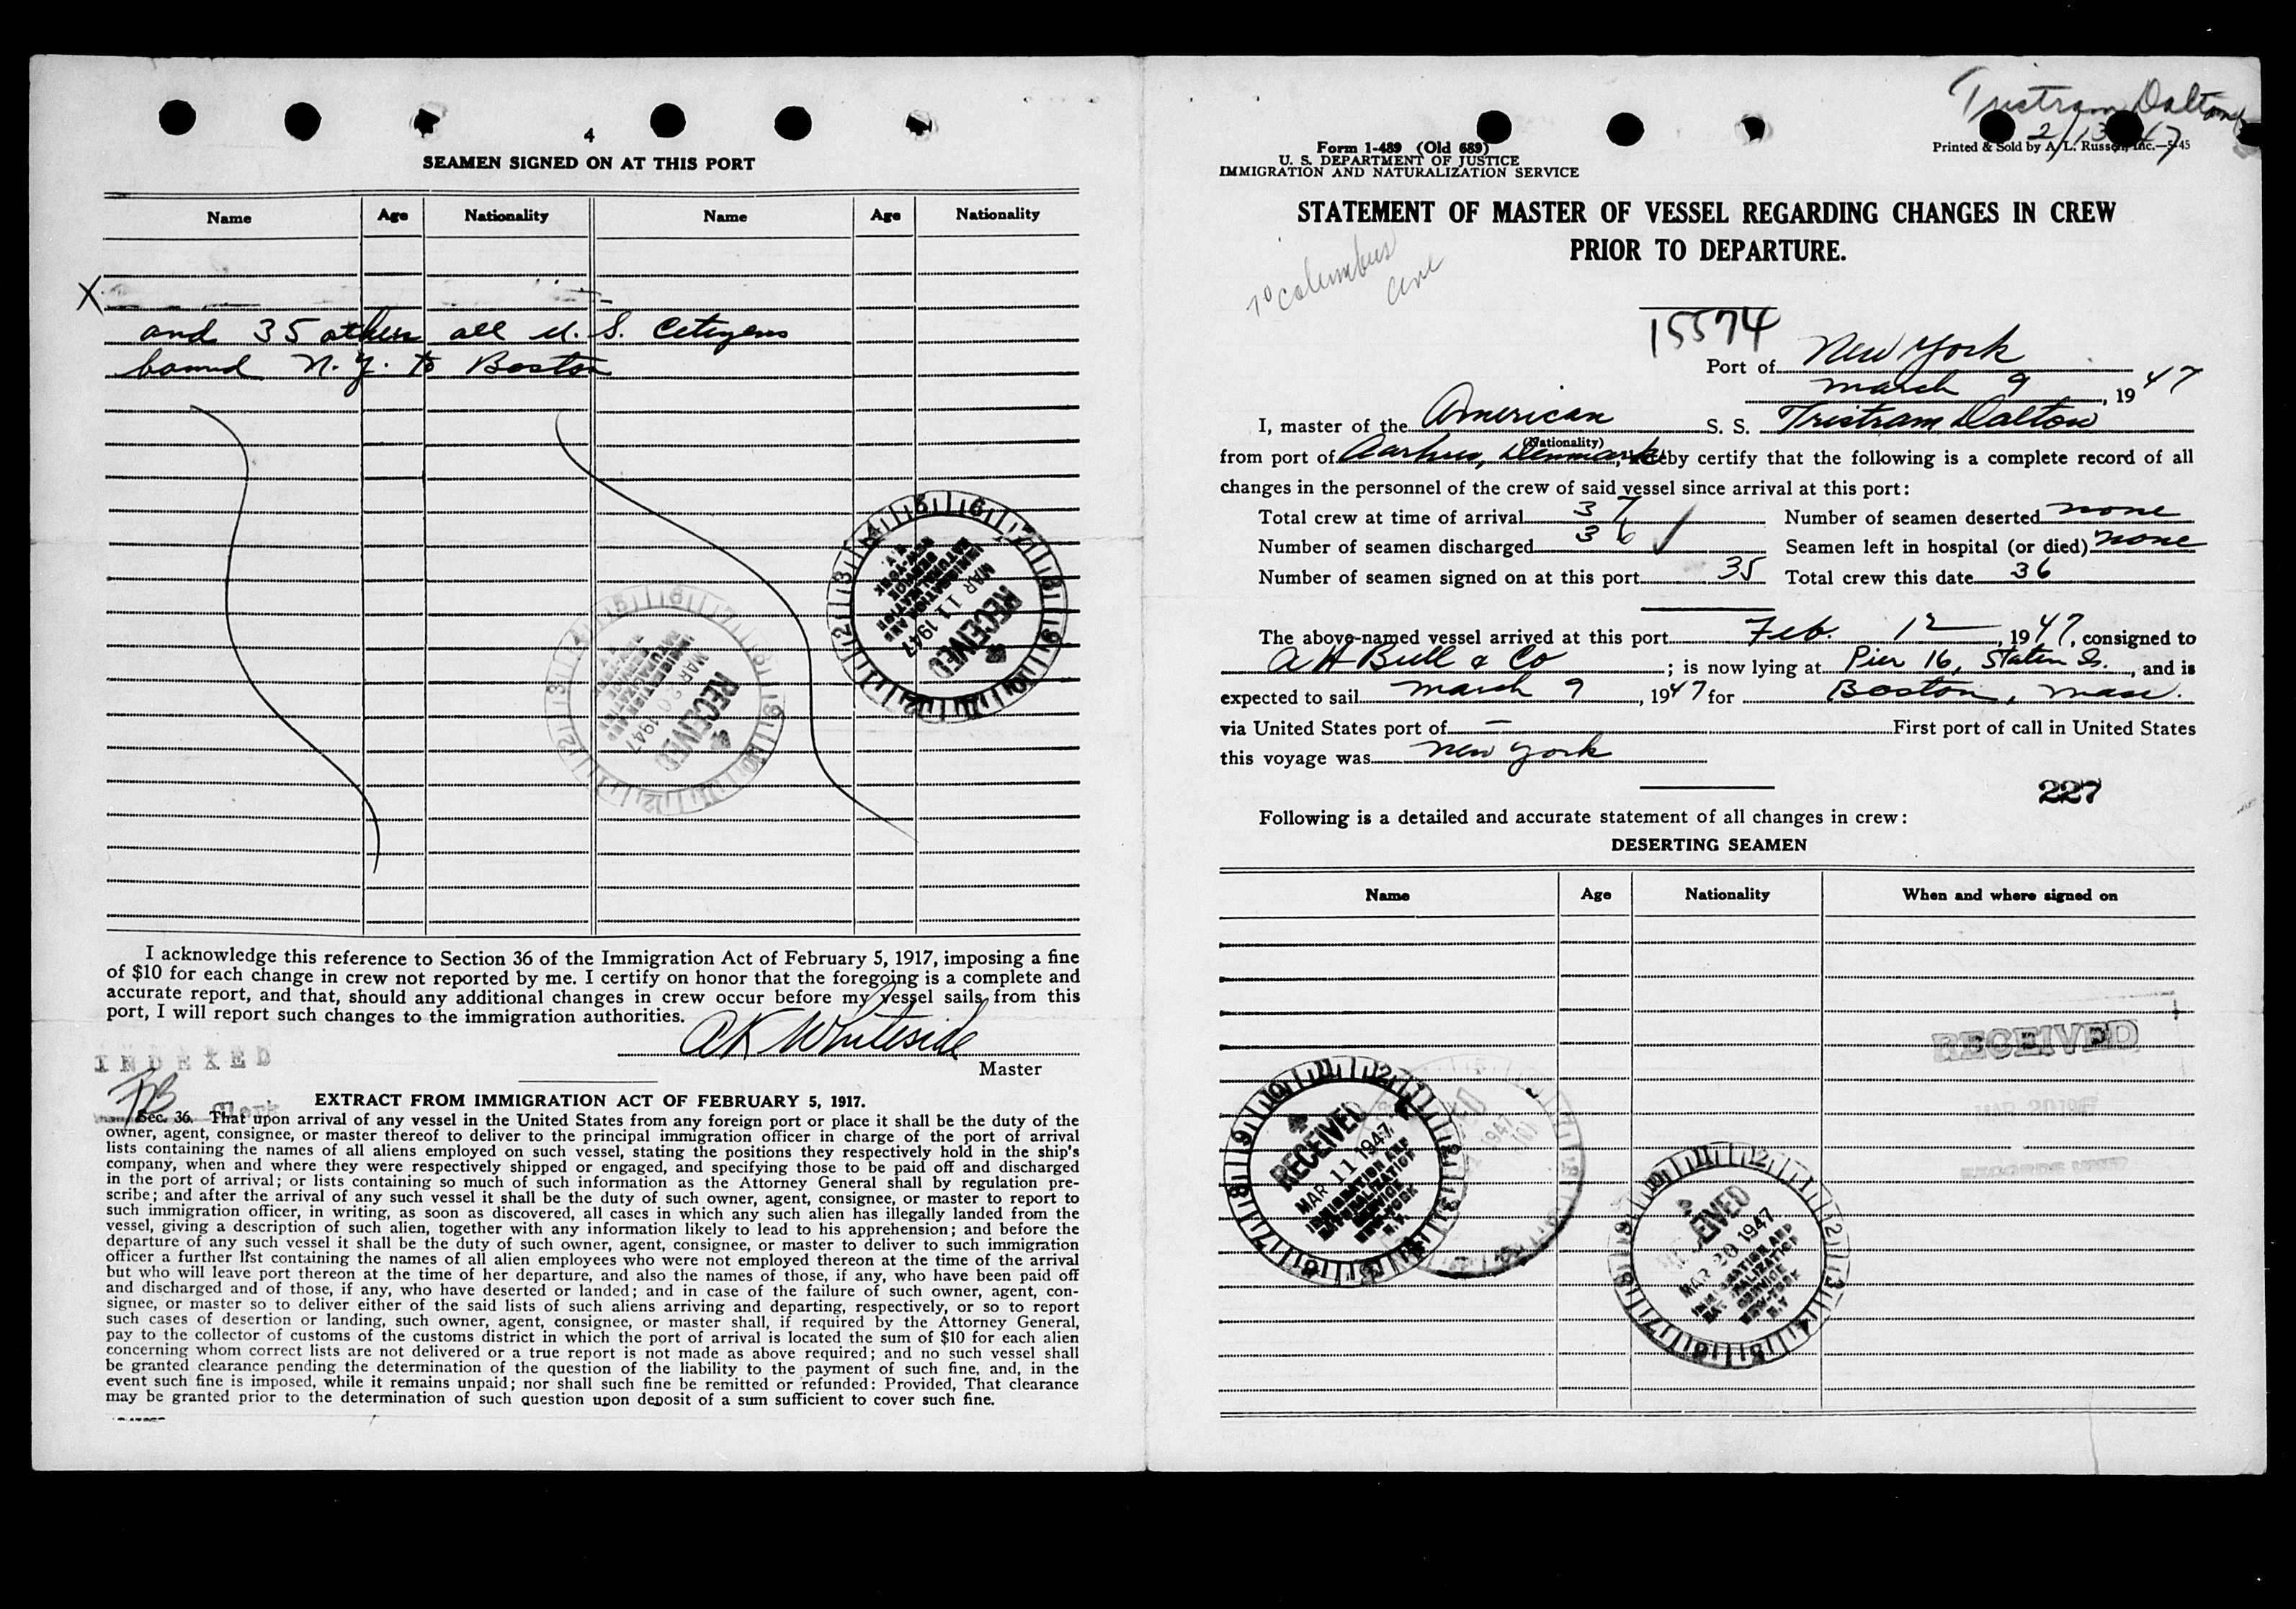 4
SEAMEN SIGNED ON AT THIS PORT
Name Age Nationality Name Age Nationality
X
and 35 others all U. S. Citizens
bound N. Y. to Boston
RECEIVED
MAR 11 1947
IMMIGRATION AND
NATURALIZATION
SERVICE
NEW-YORK
N.Y.
RECEIVED
MAR 20 1947
IMMIGRATION AND
NATURALIZATION
SERVICE
I acknowledge this reference to Section 36 of the Immigration Act of February 5, 1917, imposing a fine
of $10 for each change in crew not reported by me. I certify on honor that the foregoing is a complete and
accurate report, and that, should any additional changes in crew occur before my vessel sails from this
port, I will report such changes to the immigration authorities.
A K Whiteside
Master
INDEXED
Clerk
EXTRACT FROM IMMIGRATION ACT OF FEBRUARY 5, 1917.
Sec. 36. That upon arrival of any vessel in the United States from any foreign port or place it shall be the duty of the
owner, agent, consignee, or master thereof to deliver to the principal immigration officer in charge of the port of arrival
lists containing the names of all aliens employed on such vessel, stating the positions they respectively hold in the ship's
company, when and where they were respectively shipped or engaged, and specifying those to be paid off and discharged
in the port of arrival; or lists containing so much of such information as the Attorney General shall by regulation pre-
scribe; and after the arrival of any such vessel it shall be the duty of such owner, agent, consignee, or master to report to
such immigration officer, in writing, as soon as discovered, all cases in which any such alien has illegally landed from the
vessel, giving a description of such alien, together with any information likely to lead to his apprehension; and before the
departure of any such vessel it shall be the duty of such owner, agent, consignee, or master to deliver to such immigration
officer a further list containing the names of all alien employees who were not employed thereon at the time of the arrival
but who will leave port thereon at the time of her departure, and also the names of those, if any, who have been paid off
and discharged and of those, if any, who have deserted or landed; and in case of the failure of such owner, agent, con-
signee, or master so to deliver either of the said lists of such aliens arriving and departing, respectively, or so to report
such cases of desertion or landing, such owner, agent, consignee, or master shall, if required by the Attorney General,
pay to the collector of customs of the customs district in which the port of arrival is located the sum of $10 for each alien
concerning whom correct lists are not delivered or a true report is not made as above required; and no such vessel shall
be granted clearance pending the determination of the question of the liability to the payment of such fine, and, in the
event such fine is imposed, while it remains unpaid; nor shall such fine be remitted or refunded: Provided, That clearance
may be granted prior to the determination of such question upon deposit of a sum sufficient to cover such fine.
Tristram Dalton
2/13/47
Form 1-489 (Old 689)
U. S. DEPARTMENT OF JUSTICE
IMMIGRATION AND NATURALIZATION SERVICE
Printed & Sold by A. L. Russell, Inc.—5-45
STATEMENT OF MASTER OF VESSEL REGARDING CHANGES IN CREW
PRIOR TO DEPARTURE.
70 Columbus
Ave
15574
Port of New York
March 9, 1947
I, master of the American S. S. Tristram Dalton
(Nationality)
from port of Aarhus, Denmark, hereby certify that the following is a complete record of all
changes in the personnel of the crew of said vessel since arrival at this port:
Total crew at time of arrival 37 Number of seamen deserted none
Number of seamen discharged 36 Seamen left in hospital (or died) none
Number of seamen signed on at this port 35 Total crew this date 36
The above-named vessel arrived at this port Feb. 12, 1947, consigned to
A H Bull & Co; is now lying at Pier 16, Staten Is., and is
expected to sail March 9, 1947 for Boston, Mass.
via United States port of — First port of call in United States
this voyage was New York
227
Following is a detailed and accurate statement of all changes in crew:
DESERTING SEAMEN
Name Age Nationality When and where signed on
RECEIVED
MAR 20 1947
RECEIVED
MAR 11 1947
IMMIGRATION AND
NATURALIZATION
SERVICE
NEW-YORK
N.Y.
RECEIVED
MAR 20 1947
IMMIGRATION AND
NATURALIZATION
SERVICE
NEW-YORK
N.Y